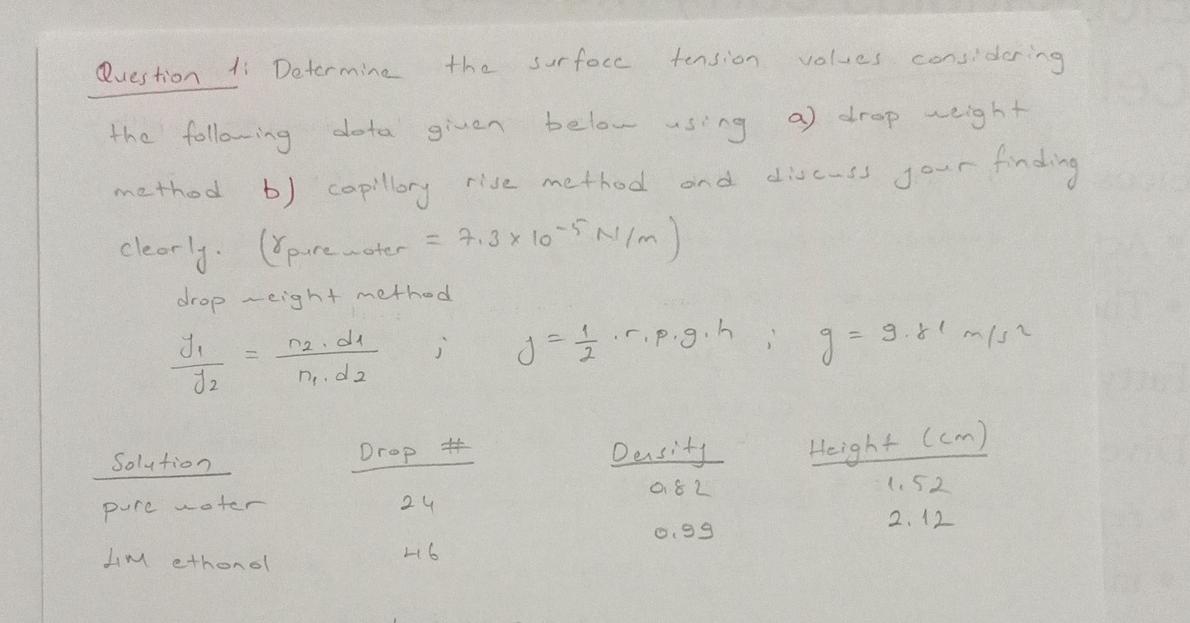 Question 1: Determine the surface tension values considering
the following data given below using a) drop weight
method b) capillary rise method and discuss your finding
clearly. (γpure water = 7.3 x 10⁻⁵ N/m)
drop weight method
γ1/γ2 = n2.d1/n1.d2 ; γ = 1/2 .r.p.g.h ; g = 9.81 m/s²
Solution Drop # Density Height (cm)
pure water 24 0.82 1.52
4M ethanol 46 0.99 2.12